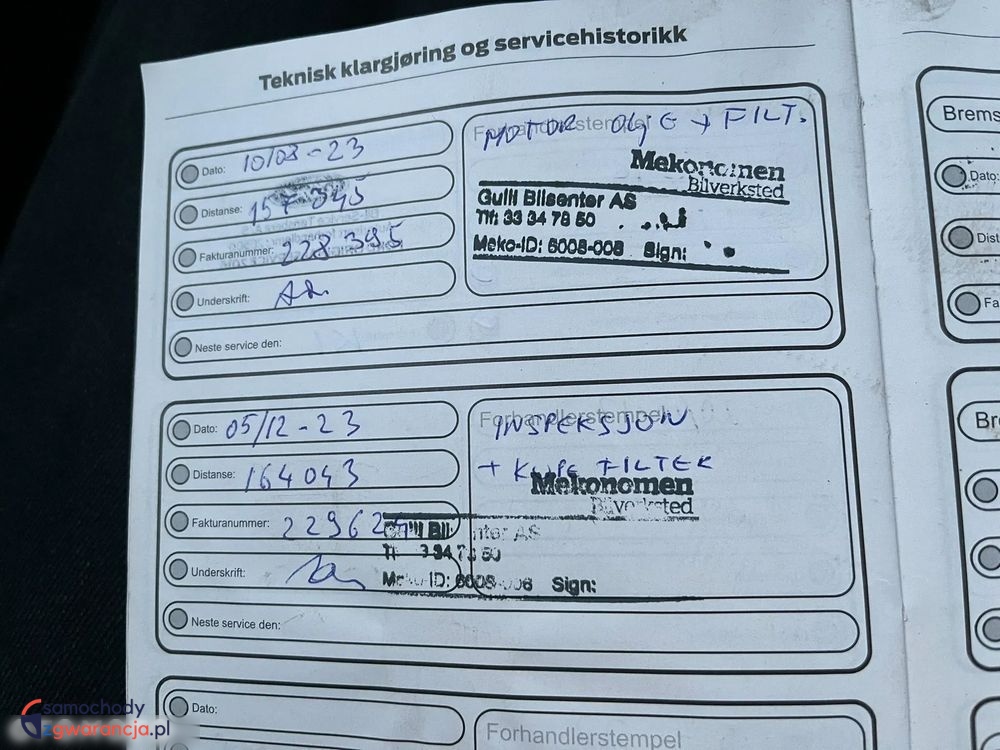 Teknisk klargjøring og servicehistorikk
Dato: 10/03-23
Distanse: 157
Fakturanummer: 228395
Underskrift:
Neste service den:
Forhandlerstempel
MOTOR OLJE + FILT.
Mekonomen
Bilverksted
Gulli Bilsenter AS
Tlf: 33 34 78 50
Meko-ID: 6008-008 Sign:
Dato: 05/12-23
Distanse: 164043
Fakturanummer: 22962
Underskrift:
Neste service den:
Forhandlerstempel
INSPEKSJON
+ KUPE FILTER
Mekonomen
Bilverksted
Gulli Bilsenter AS
Meko-ID: 6008-008 Sign:
Dato:
Forhandlerstempel
Brems
Dato:
Dist
Fa
Br
samochody
zgwarancja.pl